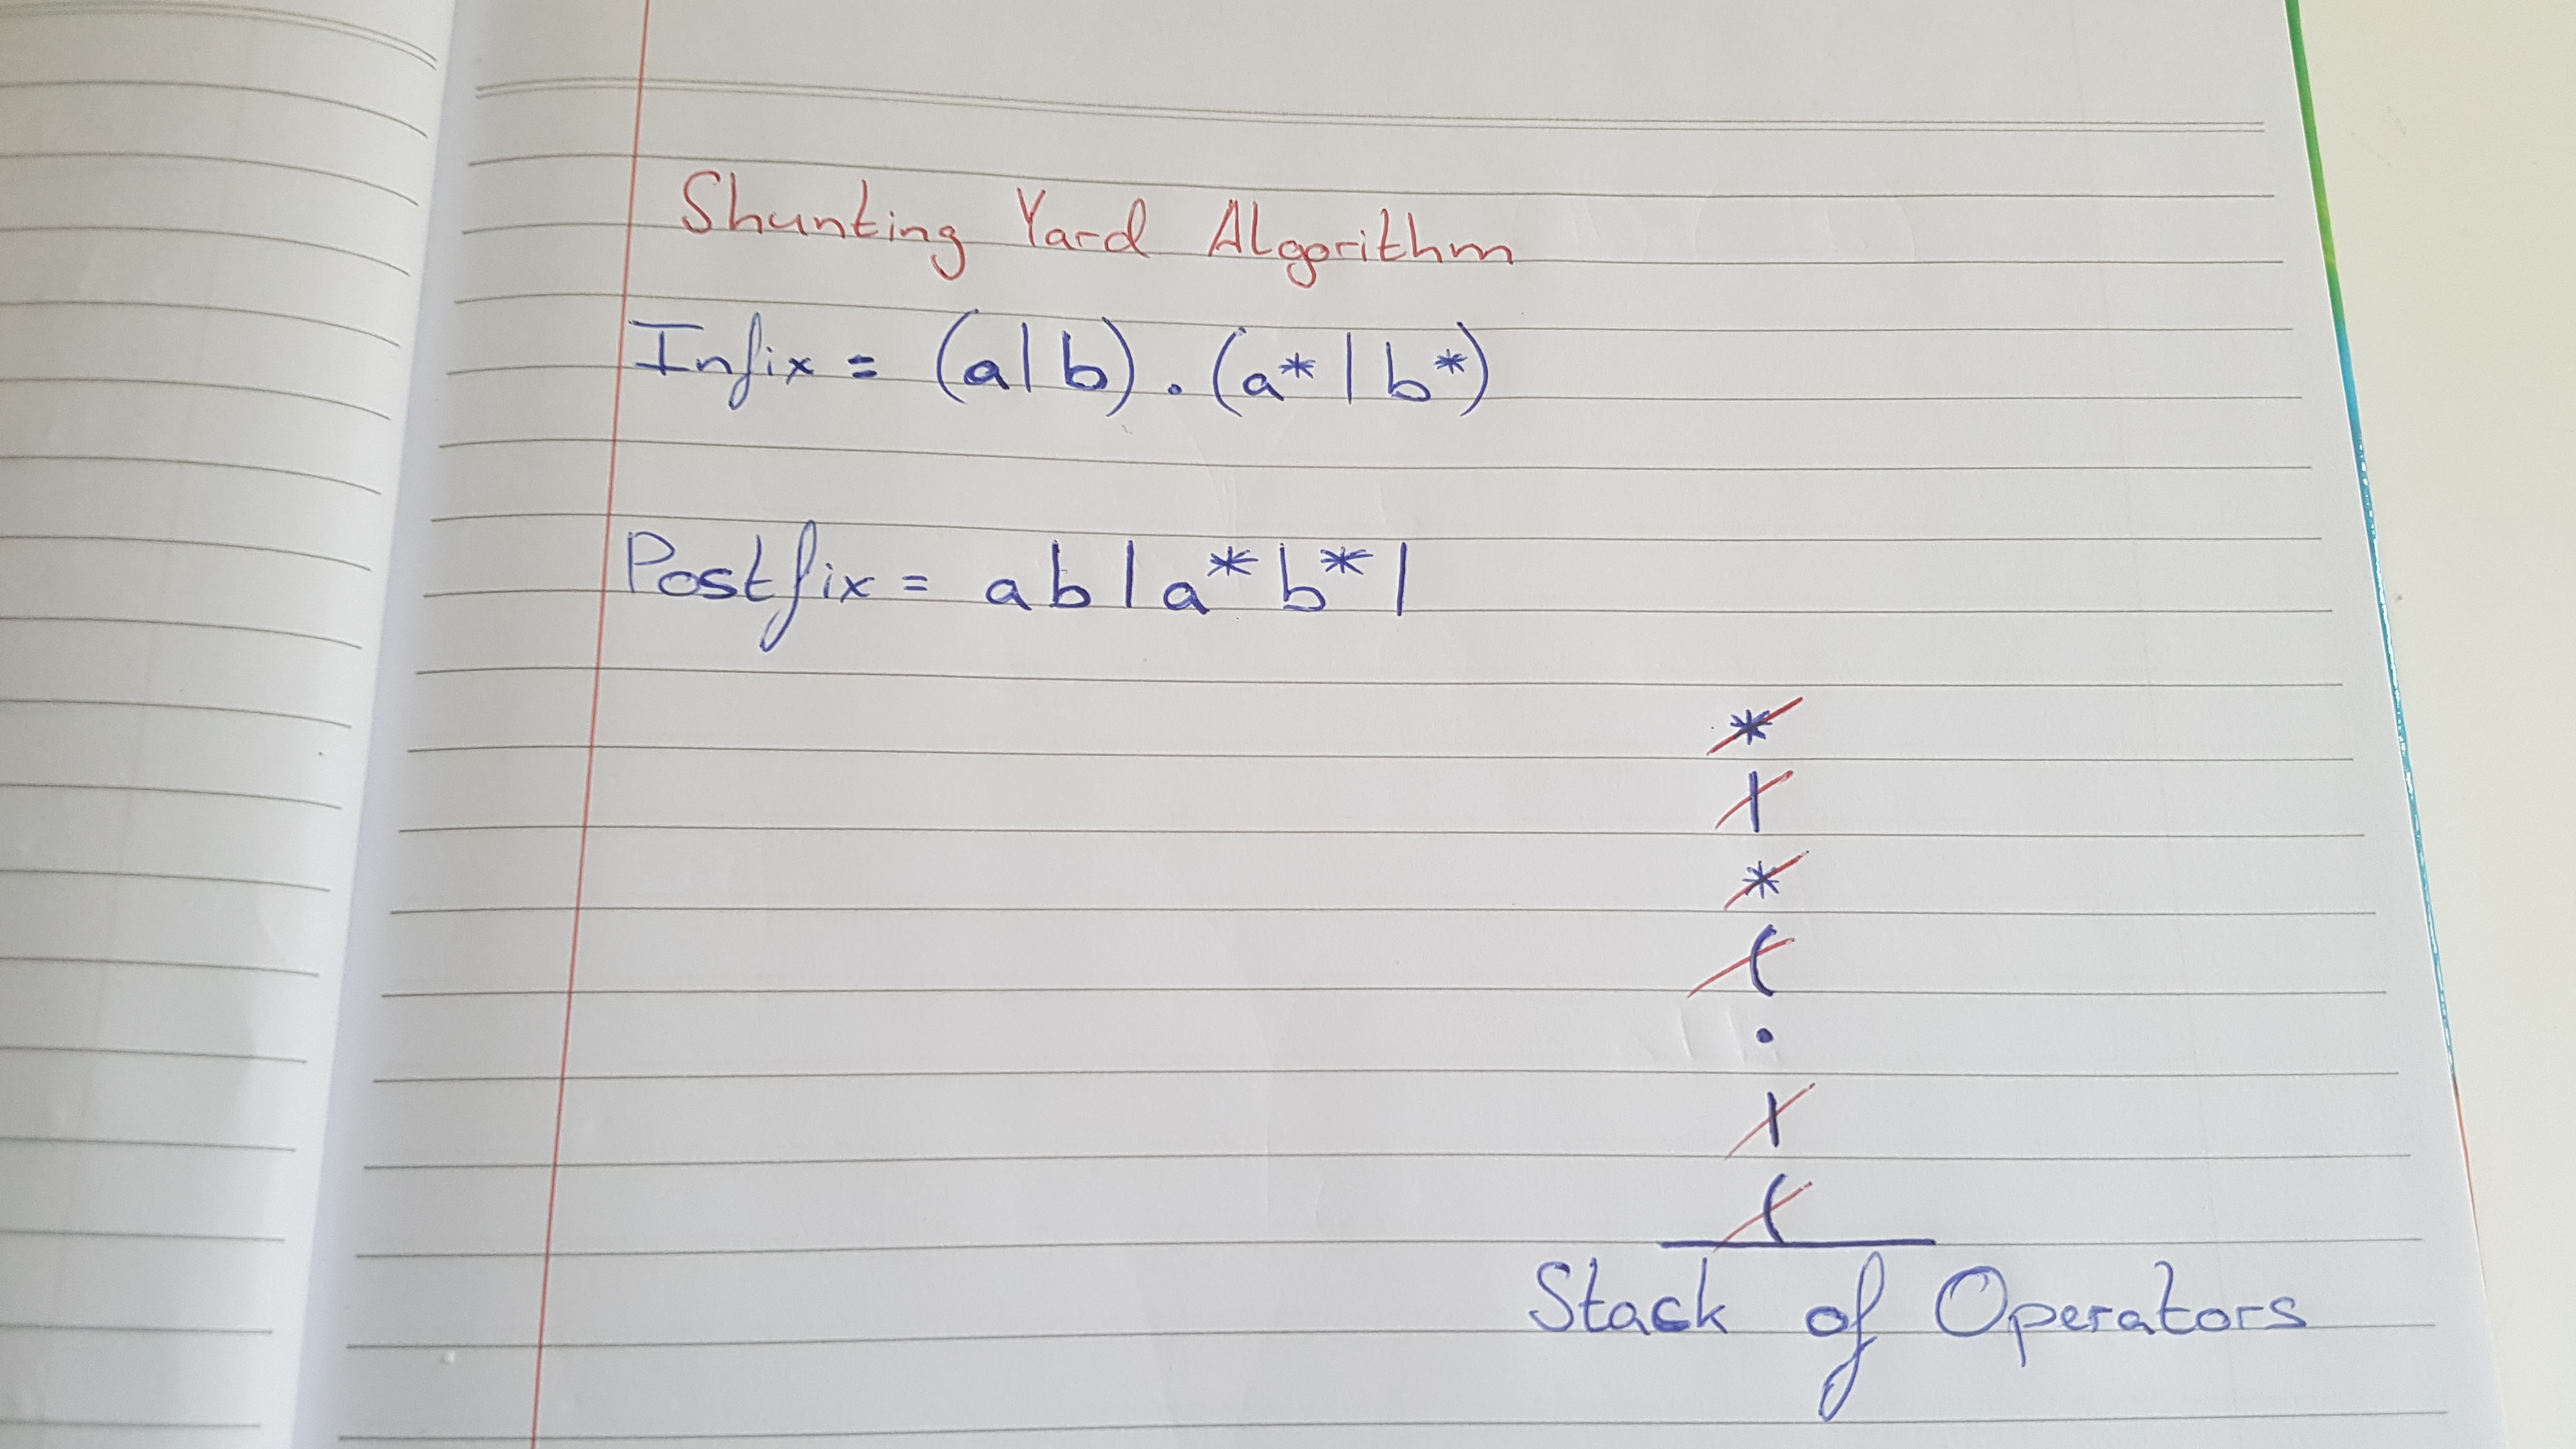 Shunting Yard Algorithm
Infix = (a|b).(a*|b*)
Postfix = ab|a*b*|
*
|
*
(
.
|
(
Stack of Operators